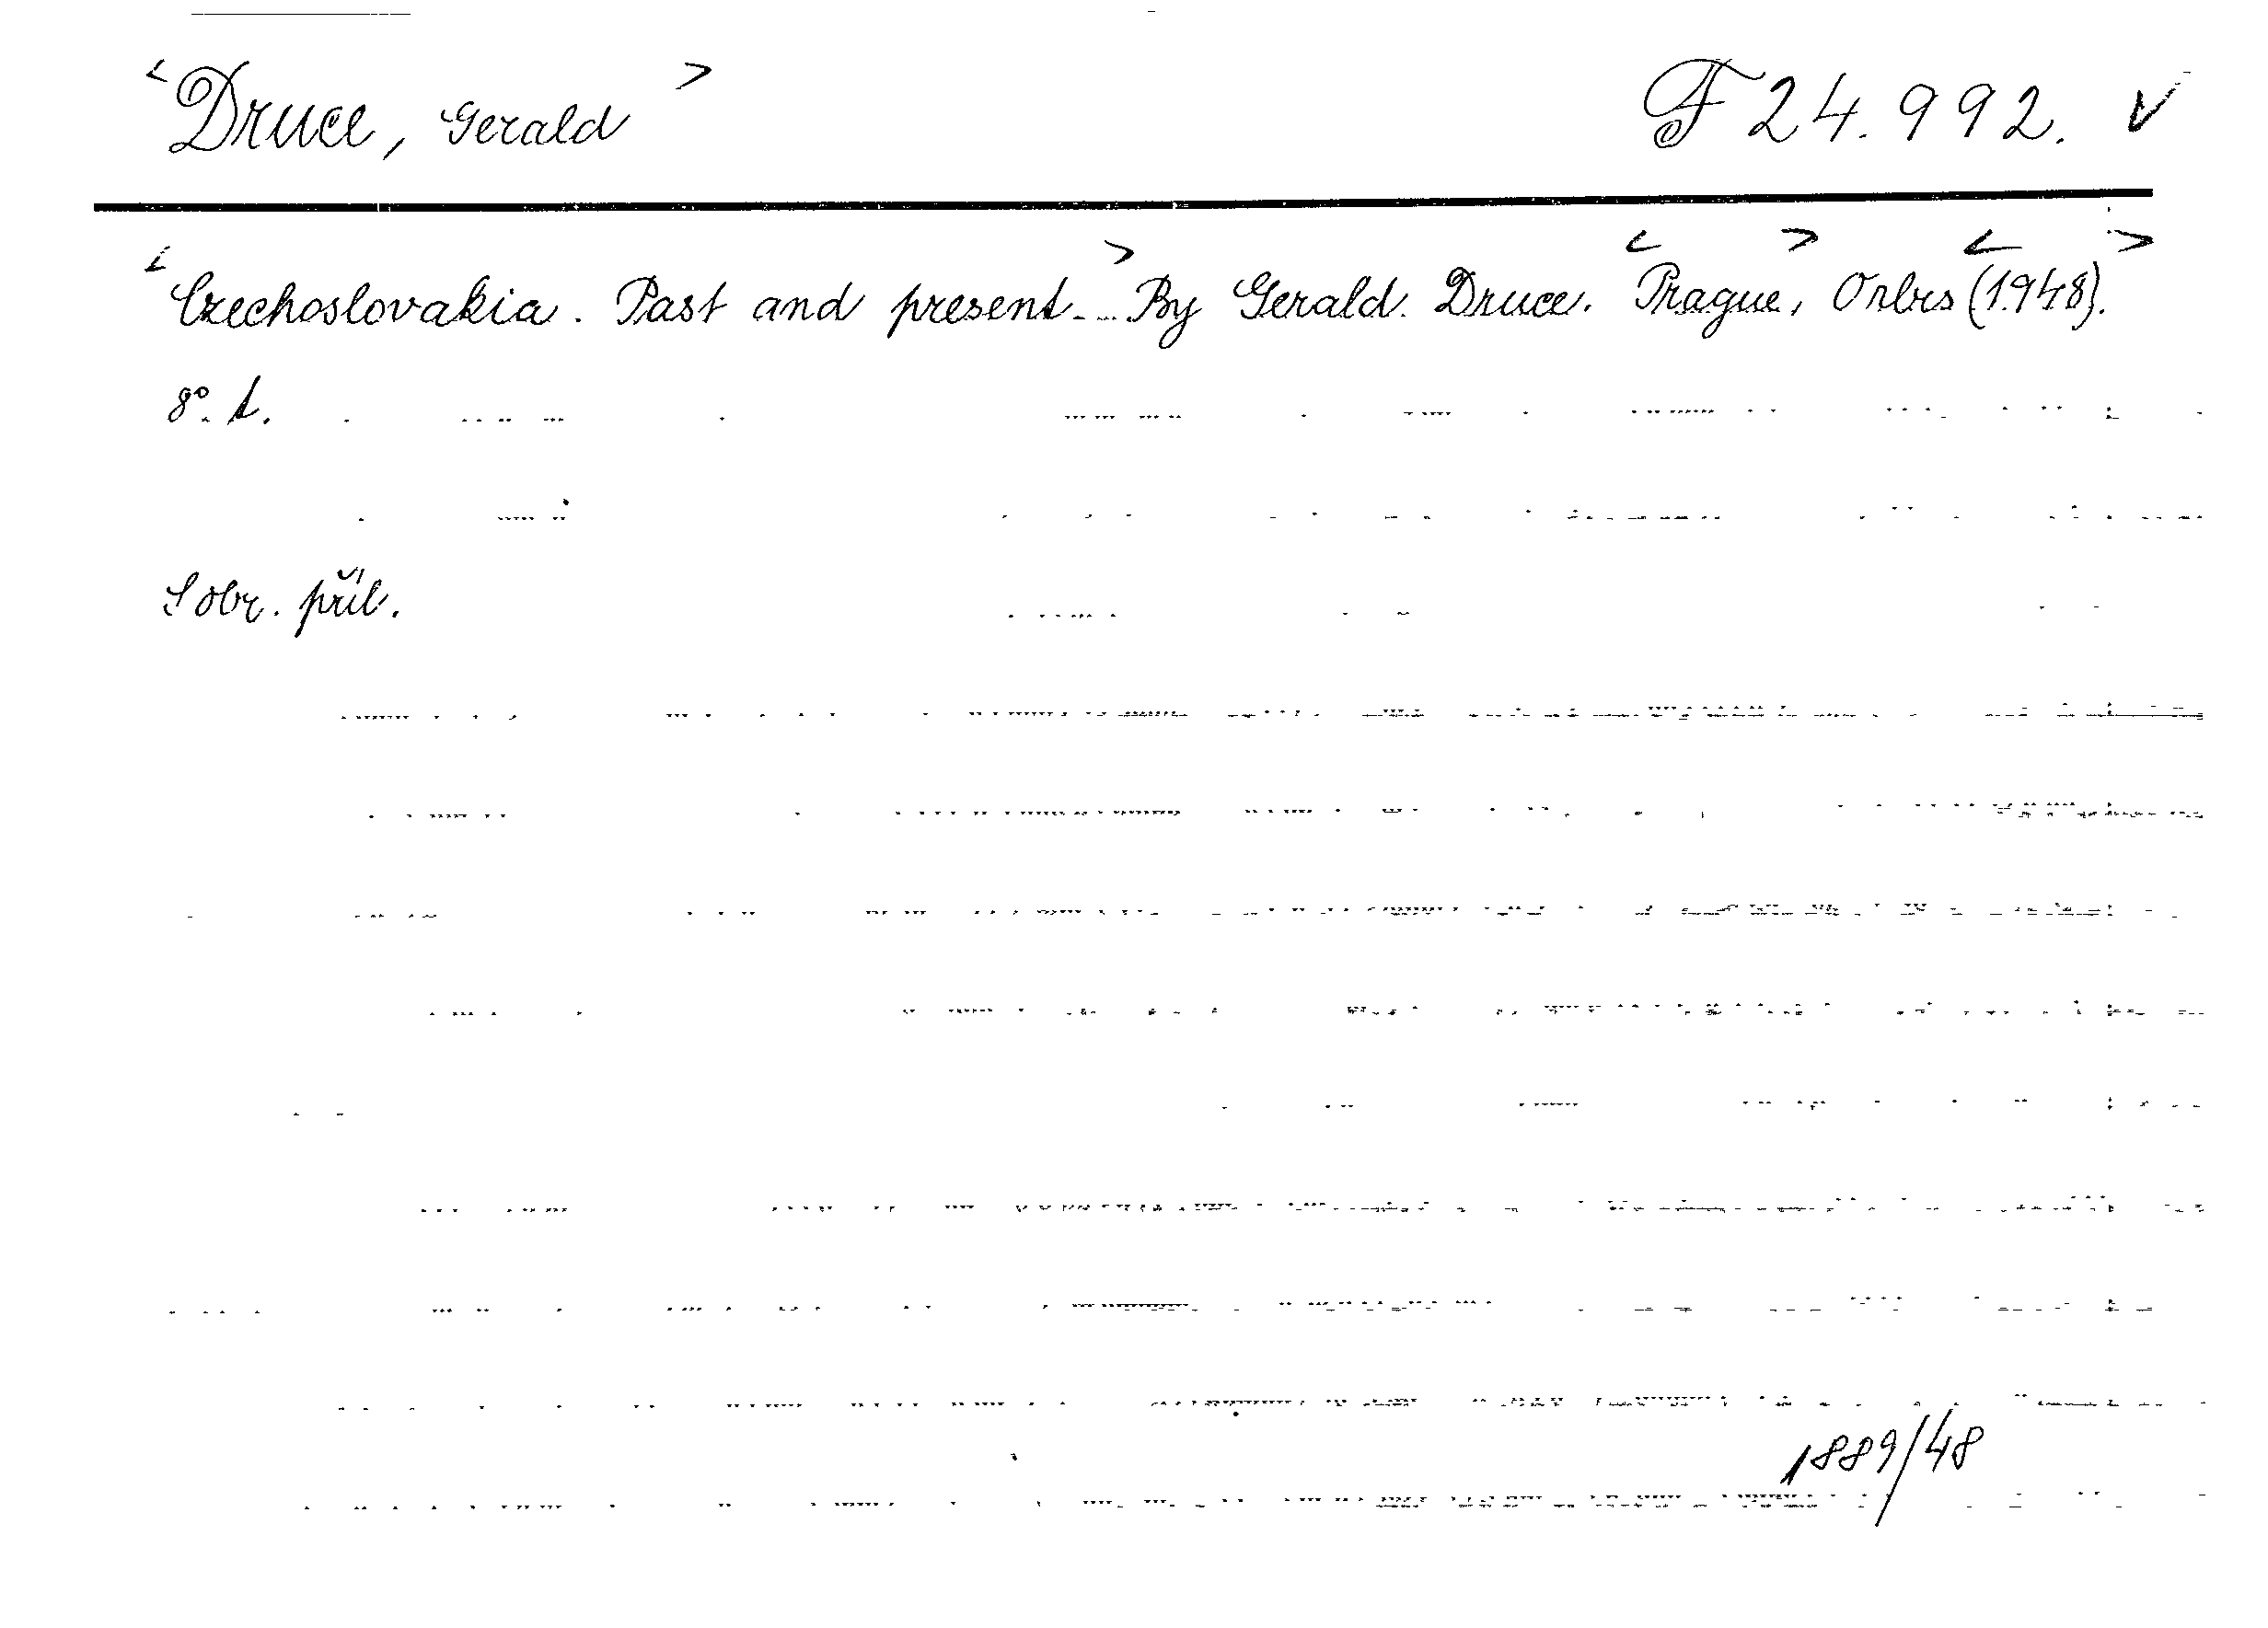 <Druce, Gerald> F 24.992. v
<Czechoslovakia. Past and present.> By Gerald Druce. <Prague>, Orbis <(1948)>.
8°. t.
S obr. příl.
1889/48